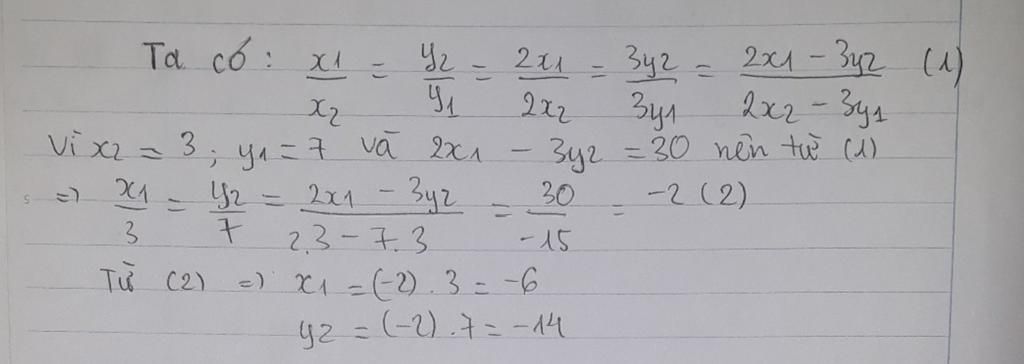 Ta có: x1/x2 = y2/y1 = 2x1/2x2 = 3y2/3y1 = 2x1 - 3y2/2x2 - 3y1 (1)
Vì x2 = 3; y1 = 7 và 2x1 - 3y2 = 30 nên từ (1)
=> x1/3 = y2/7 = 2x1 - 3y2/2.3 - 7.3 = 30/-15 = -2 (2)
Từ (2) => x1 = (-2) . 3 = -6
y2 = (-2) . 7 = -14